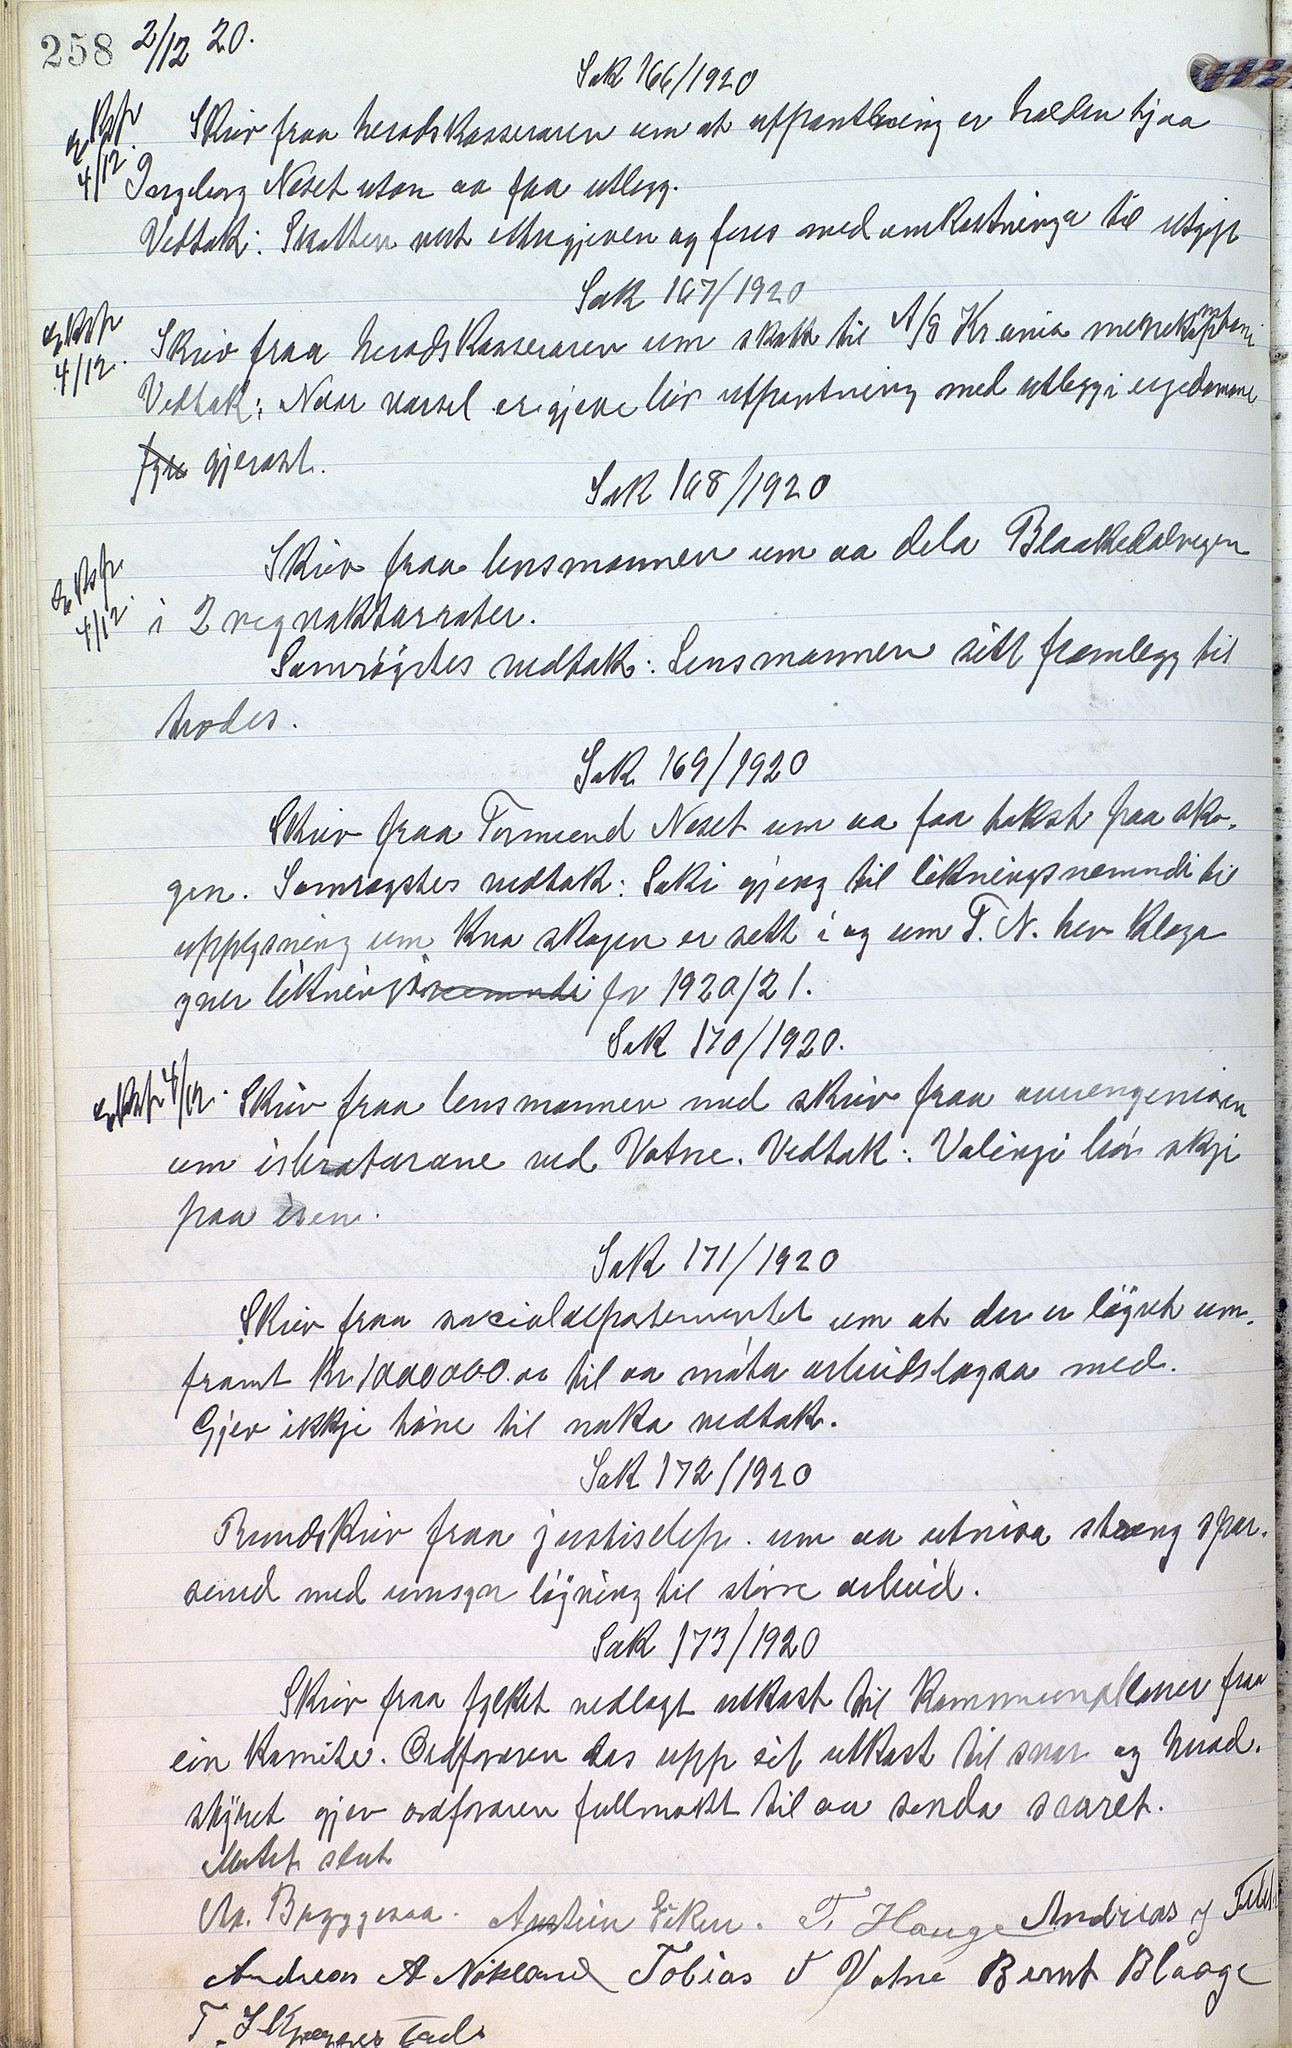 258 2/12 20.
Sak 166/1920
Ekspr 4/12.
Skriv fraa heradskasseraren um at utpantning er halden hjaa
Ingeborg Neset utan aa faa utlegg.
Vedtak: Skatten vert ettergjeven og føres med umkostninga til utgift
Sak 167/1920
Ekspr 4/12.
Skriv fraa heradskasseraren um skatt til A/S Kr.ania
Vedtak: Naar varsel er gjeve bør utpantning med utlegg i eigedomane
gjerast.
Sak 168/1920
Ekspr 4/12.
Skriv fraa lensmannen um aa dela Blaakedalvegen
i 2 vegvaktarroter.
Samrøystes vedtak: Lensmannen sitt framlegg til
trædes.
Sak 169/1920
Skriv fraa Tormund Neset um aa faa takst paa sko-
gen. Samrøystes vedtak: Saki gjeng til likningsnemndi til
upplysning um kva skogen er sett i og um T. N. hev klaga
yver liknings nemndi for 1920/21.
Sak 170/1920.
Ekspr 4/12.
Skriv fraa lensmannen med skriv fraa amtsingeniøren
um isbrytarane ved Vatne. Vedtak: Vølingi bør skje
paa isen.
Sak 171/1920
Skriv fraa socialdepartementet um at der er løyvt um-
framt kr. 1000000.00 til aa møta arbeidsløysa med.
Gjev ikkje høve til noko vedtak.
Sak 172/1920
Rundskriv fraa justisdep. um aa utvisa streng spar-
semd med umsyn løyving til større arbeid.
Sak 173/1920
Skriv fraa fylket vedlagt utkast til kommunallover fraa
ein komite. Ordføraren las upp eit utkast til svar og herad-
styret gjev ordføraren fullmakt til aa senda svaret.
Møtet slut
Aa. Byggesaa. Austein Eiken. T. Hauge Andreas J
Andreas A Nøkland Tobias T Vatne Bernt Blaage
T.